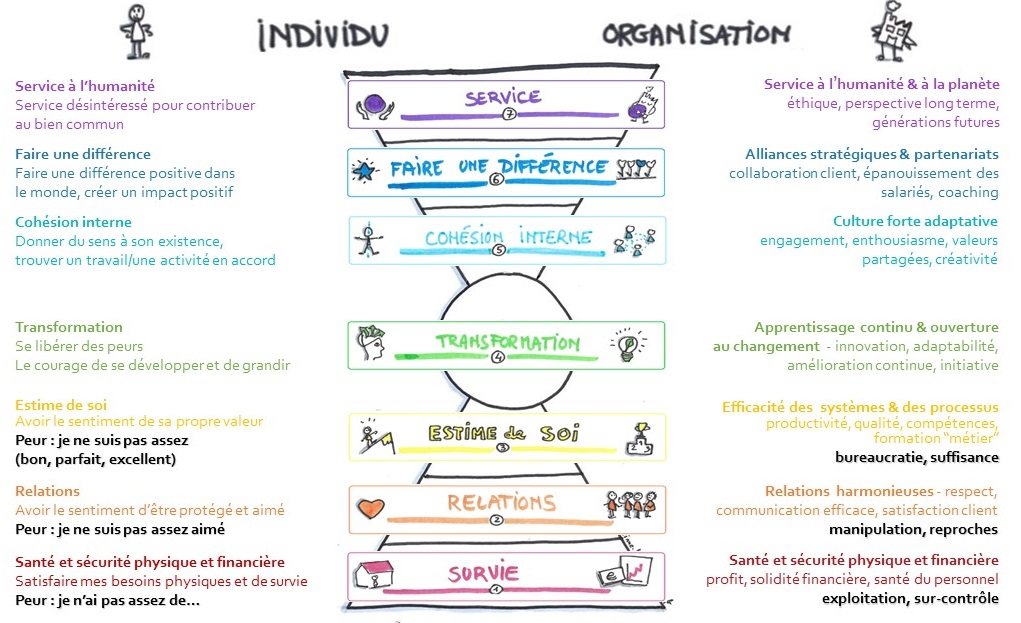 INDIVIDU
ORGANISATION
Service à l'humanité
Service désintéressé pour contribuer
au bien commun
SERVICE
7
Service à l'humanité & à la planète
éthique, perspective long terme,
générations futures
Faire une différence
Faire une différence positive dans
le monde, créer un impact positif
FAIRE UNE DIFFÉRENCE
6
Alliances stratégiques & partenariats
collaboration client, épanouissement des
salariés, coaching
Cohésion interne
Donner du sens à son existence,
trouver un travail/une activité en accord
COHÉSION INTERNE
5
Culture forte adaptative
engagement, enthousiasme, valeurs
partagées, créativité
Transformation
Se libérer des peurs
Le courage de se développer et de grandir
TRANSFORMATION
4
Apprentissage continu & ouverture
au changement - innovation, adaptabilité,
amélioration continue, initiative
Estime de soi
Avoir le sentiment de sa propre valeur
Peur : je ne suis pas assez
(bon, parfait, excellent)
ESTIME de SOI
3
Efficacité des systèmes & des processus
productivité, qualité, compétences,
formation "métier"
bureaucratie, suffisance
Relations
Avoir le sentiment d'être protégé et aimé
Peur : je ne suis pas assez aimé
RELATIONS
2
Relations harmonieuses - respect,
communication efficace, satisfaction client
manipulation, reproches
Santé et sécurité physique et financière
Satisfaire mes besoins physiques et de survie
Peur : je n'ai pas assez de...
SURVIE
1
€
Santé et sécurité physique et financière
profit, solidité financière, santé du personnel
exploitation, sur-contrôle